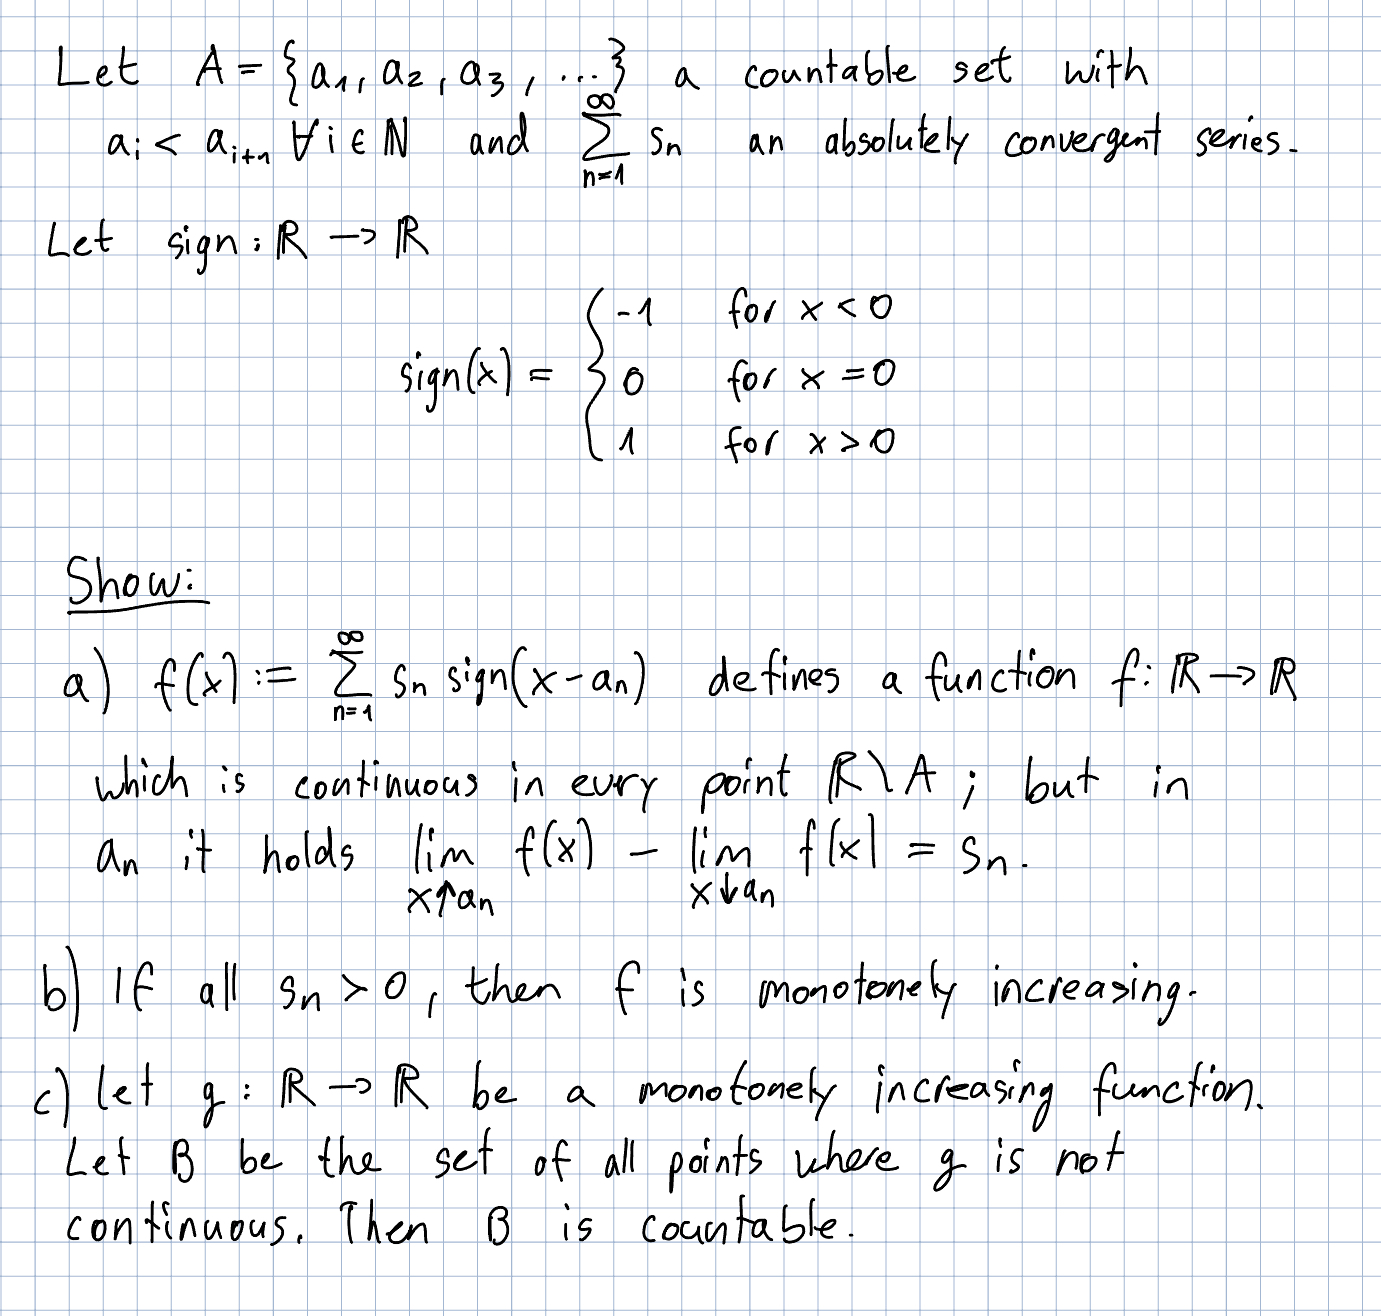 Let A = {a₁, a₂, a₃, ...} a countable set with
aᵢ < aᵢ₊₁ ∀ i ∈ ℕ and ∑_{n=1}^{∞} sₙ an absolutely convergent series.
Let sign: ℝ → ℝ
sign(x) = { -1 for x < 0
0 for x = 0
1 for x > 0
Show:
a) f(x) := ∑_{n=1}^{∞} sₙ sign(x - aₙ) defines a function f: ℝ → ℝ
which is continuous in every point ℝ \ A ; but in
aₙ it holds lim_{x↑aₙ} f(x) - lim_{x↓aₙ} f(x) = sₙ.
b) If all sₙ > 0, then f is monotonely increasing.
c) Let g: ℝ → ℝ be a monotonely increasing function.
Let B be the set of all points where g is not
continuous. Then B is countable.